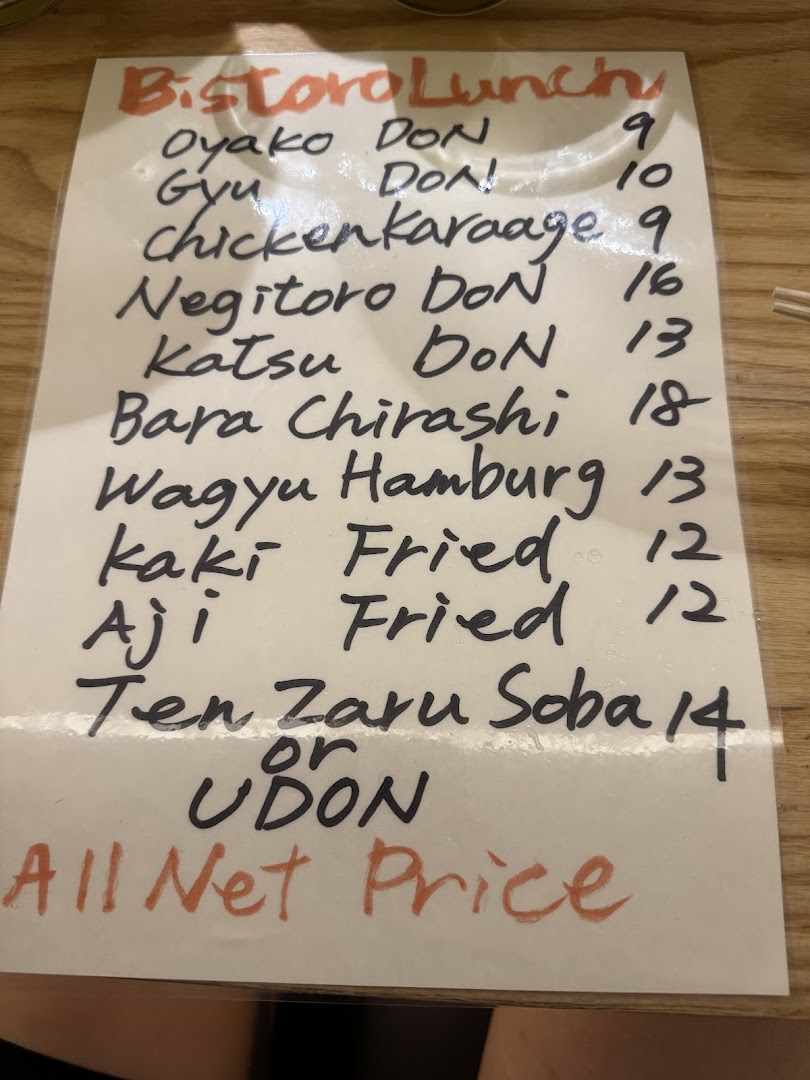 Bistoro Lunch
Oyako DoN 9
Gyu DoN 10
Chicken Karaage 9
Negitoro DoN 16
Katsu DoN 13
Bara Chirashi 18
Wagyu Hamburg 13
Kaki Fried 12
Aji Fried 12
Ten Zaru Soba 14
or
UDON
All Net Price